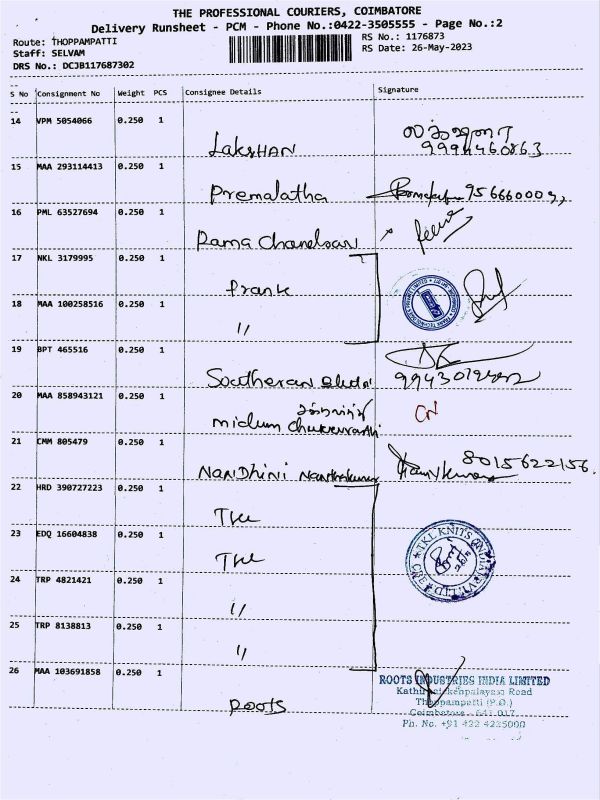 THE PROFESSIONAL COURIERS, COIMBATORE
Delivery Runsheet - PCM - Phone No.:0422-3505555 - Page No.:2
Route: THOPPAMPATTI
Staff: SELVAM
DRS No.: DCJB117687302
RS No.: 1176873
RS Date: 26-May-2023
S No Consignment No Weight PCS Consignee Details Signature
14 VPM 5054066 0.250 1
LAKSHAN
15 MAA 293114413 0.250 1
Premalatha
16 PML 63527694 0.250 1
Rama
17 NKL 3179995 0.250 1
Prank
18 MAA 100258516 0.250 1
"
19 BPT 465516 0.250 1
20 MAA 858943121 0.250 1
CN
21 CMM 805479 0.250 1
NANDHINI 8015622156.
22 HRD 390727223 0.250 1
TKL
23 EDQ 16604838 0.250 1
TKL
TKL KNITS (INDIA) PVT. LTD.
24 TRP 4821421 0.250 1
"
25 TRP 8138813 0.250 1
"
26 MAA 103691858 0.250 1
ROOTS
ROOTS INDUSTRIES INDIA LIMITED
Road
Thoppampatti (P.O.)
Coimbatore - 641 017
Ph. No. +91 422 4225000